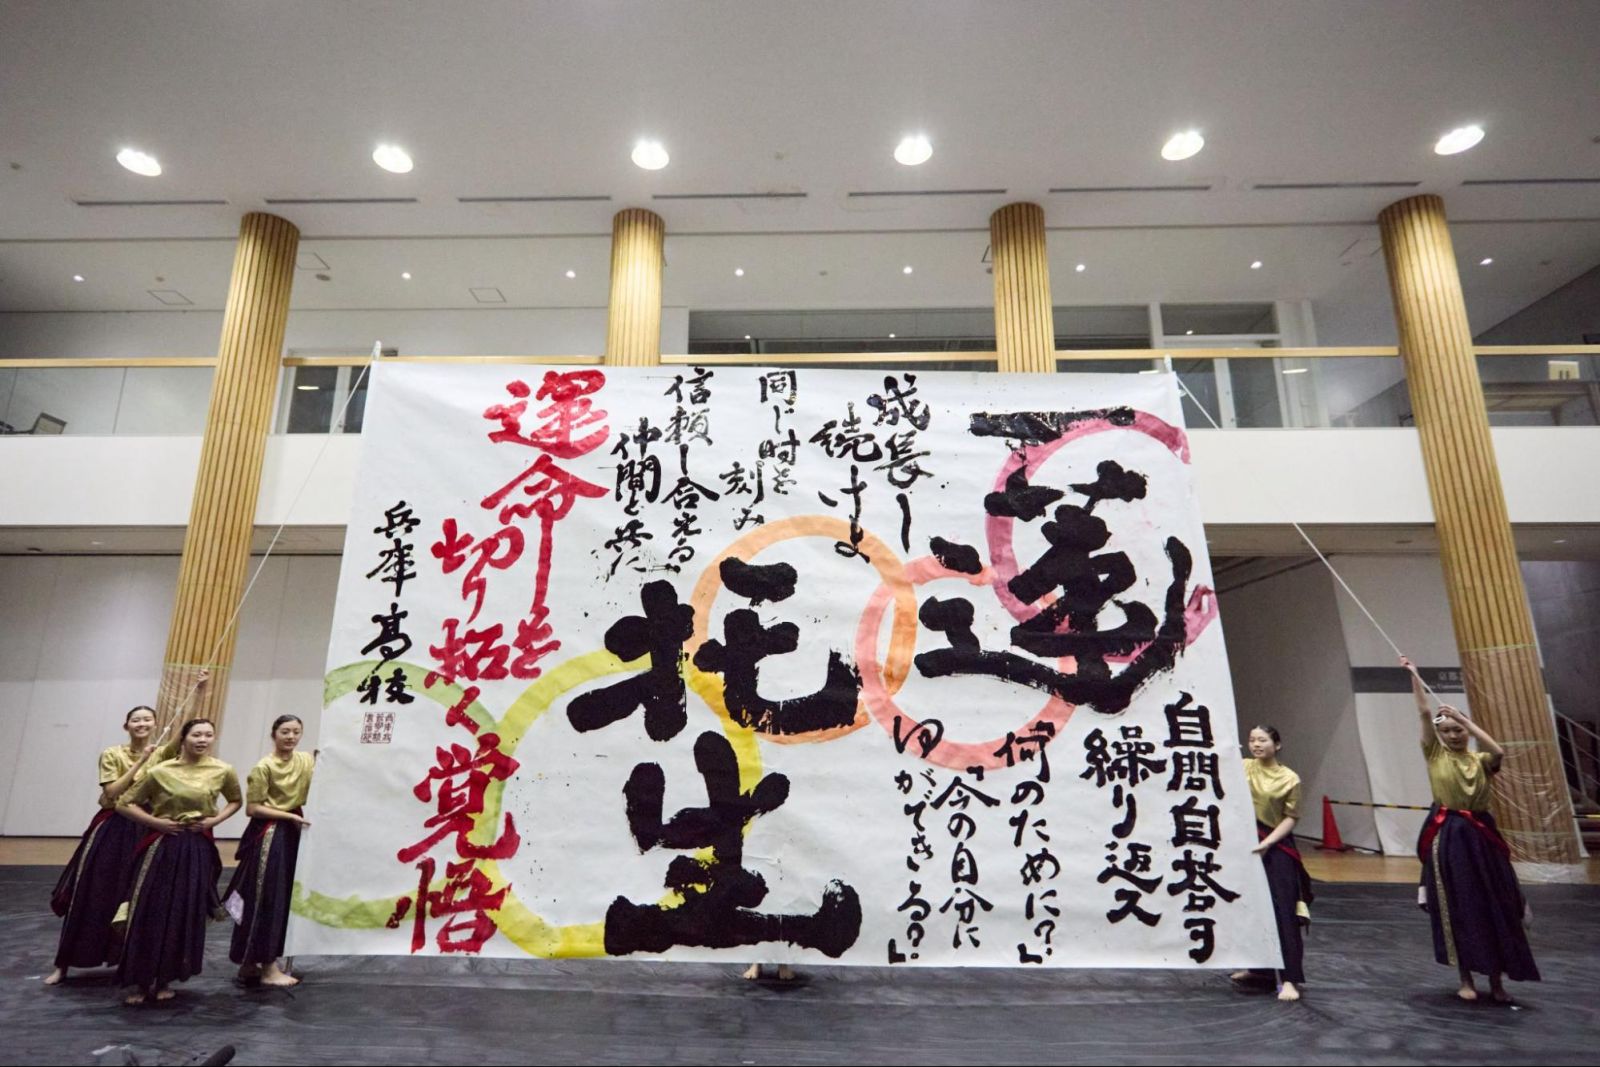 一蓮
托生
自問自答す
繰り返ス
何のために？」
「今の自分に
何ができる？」
成長し
続けよ
同じ時を
刻み
信頼し合える
仲間と共に
運命を
切り拓く
覚悟
兵庫高校